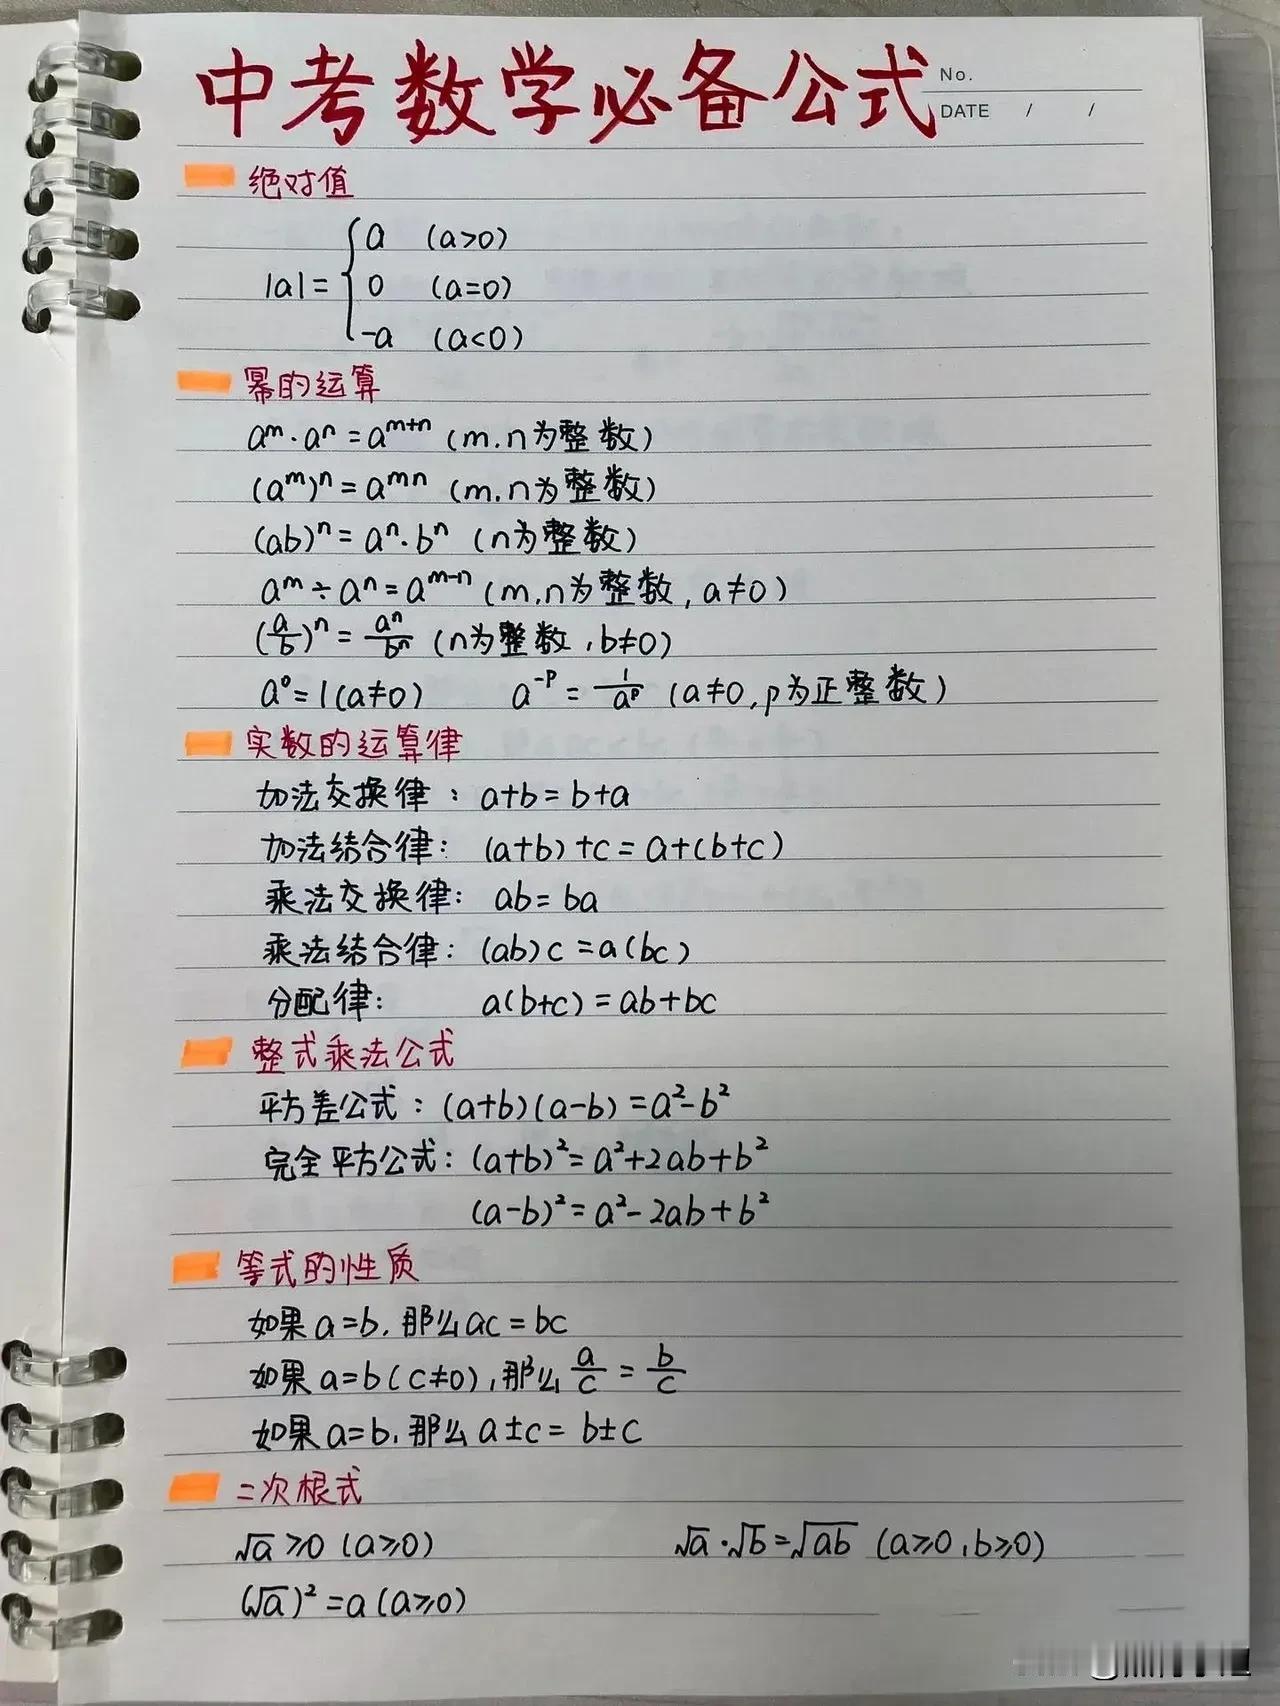 中考数学必备公式
No.
DATE / /
绝对值
|a|={ a (a>0)
0 (a=0)
-a (a<0)
幂的运算
aᵐ·aⁿ=aᵐ⁺ⁿ (m,n为整数)
(aᵐ)ⁿ=aᵐⁿ (m,n为整数)
(ab)ⁿ=aⁿ·bⁿ (n为整数)
aᵐ÷aⁿ=aᵐ⁻ⁿ (m,n为整数,a≠0)
(a/b)ⁿ=aⁿ/bⁿ (n为整数,b≠0)
a⁰=1(a≠0) a⁻ᵖ=1/aᵖ (a≠0,p为正整数)
实数的运算律
加法交换律:a+b=b+a
加法结合律:(a+b)+c=a+(b+c)
乘法交换律:ab=ba
乘法结合律:(ab)c=a(bc)
分配律: a(b+c)=ab+bc
整式乘法公式
平方差公式:(a+b)(a-b)=a²-b²
完全平方公式:(a+b)²=a²+2ab+b²
(a-b)²=a²-2ab+b²
等式的性质
如果a=b,那么ac=bc
如果a=b(c≠0),那么a/c=b/c
如果a=b,那么a±c=b±c
二次根式
√a≥0 (a≥0) √a·√b=√ab (a≥0,b≥0)
(√a)²=a(a≥0)